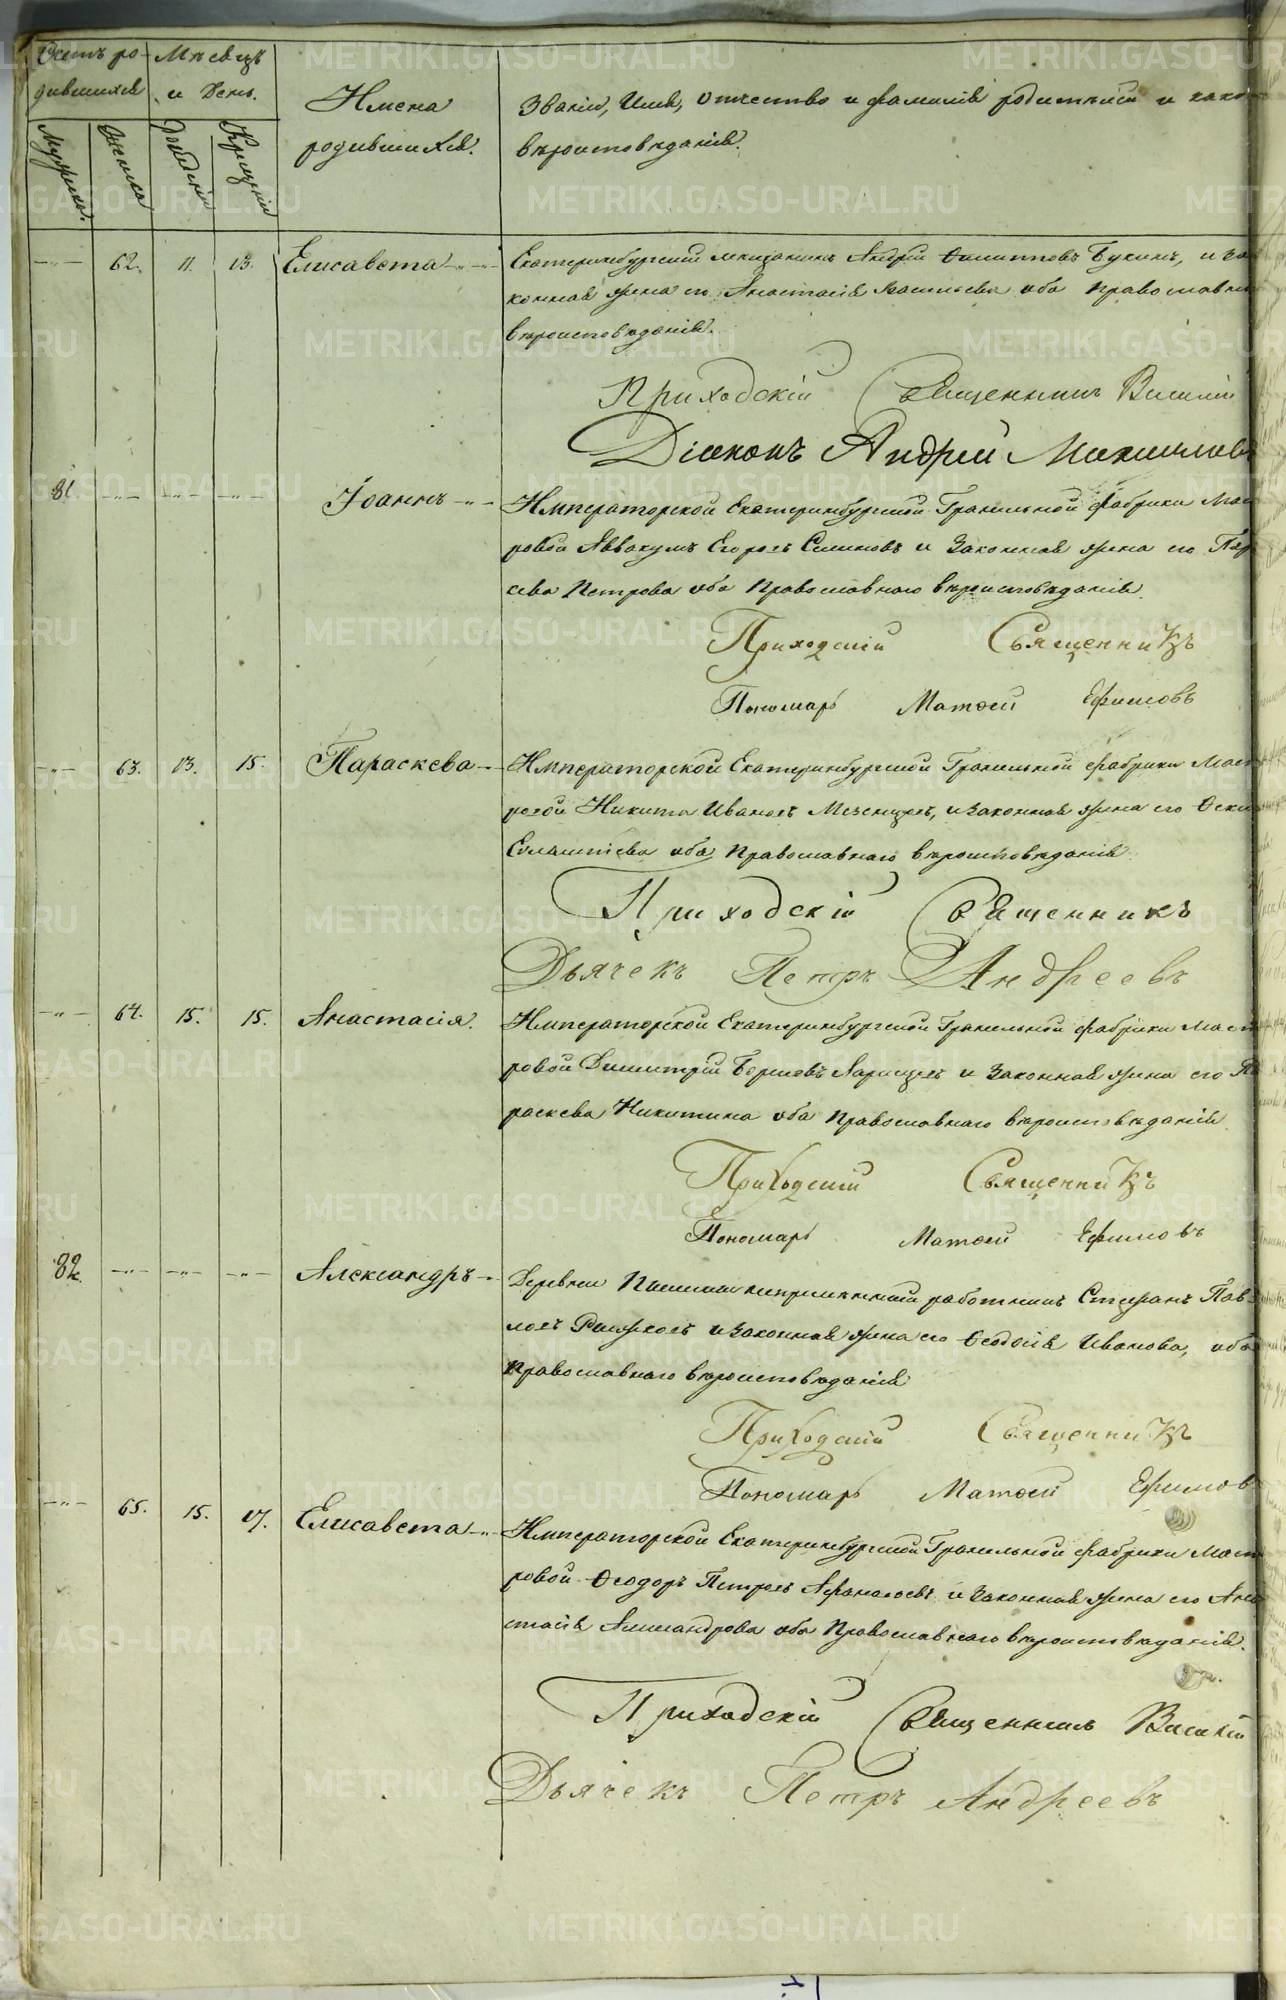 Счетъ ро-
дившихся
Мѣсяцъ
и день.
Имена
родившихся.
Званіе, Имя, отчество и фамилія родителей и како
вѣроисповѣданія.
Мужеска.
Женска
Рожденія
Крещенія
62. 11. 13. Елисавета Екатеринбургскій мѣщанинъ Андрей Филипповъ Букинъ, и за
конная жена его Анастасія Васильева оба православна
вѣроисповѣданія.
Приходскій Священникъ Василій
Діаконъ Андрей
81. Іоаннъ Императорской Екатеринбургской Гранильной фабрики Мас
ровой Аввакумъ Егоровъ и Законная жена его Пар
Петрова оба Православнаго вѣроисповѣданія
Приходскій Священникъ
Пономарь Матѳей Ефимовъ
63. 13. 15. Параскева Императорской Екатеринбургской Гранильной фабрики Маст
ровой Никита Ивановъ и законная жена его
оба Православнаго вѣроисповѣданія
Приходскій Священникъ
Дьячекъ Петръ Андреевъ
64. 15. 15. Анастасія. Императорской Екатеринбургской Гранильной фабрики Маст
ровой Димитрій и Законная жена его Па
раскева Никитина оба Православнаго вѣроисповѣданія
Приходскій Священникъ
Пономарь Матѳей Ефимовъ
82. Александръ Деревни непремѣнный работникъ Стефанъ Пав
ловъ и законная жена его Ѳеодосія Иванова, оба
Православнаго вѣроисповѣданія
Приходскій Священникъ
Пономарь Матѳей Ефимов
65. 15. 17. Елисавета Императорской Екатеринбургской Гранильной фабрики Маст
ровой Ѳеодоръ Петровъ и Законная жена его Ана
стасія Александрова оба Православнаго вѣроисповѣданія.
Приходскій Священникъ Василій
Дьячекъ Петръ Андреевъ
METRIKI.GASO-URAL.RU